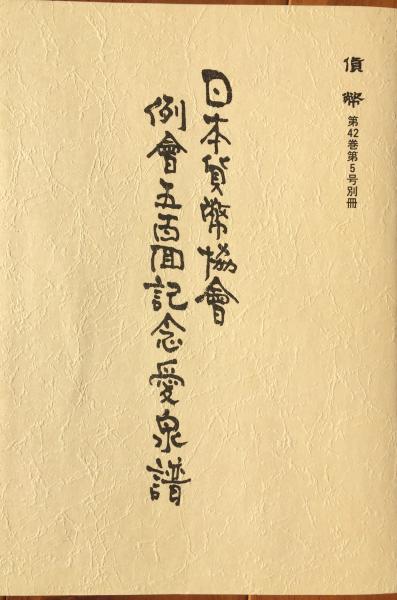 貨幣 第42巻第5号別冊
日本貨幣協會
例會五百回記念愛泉譜